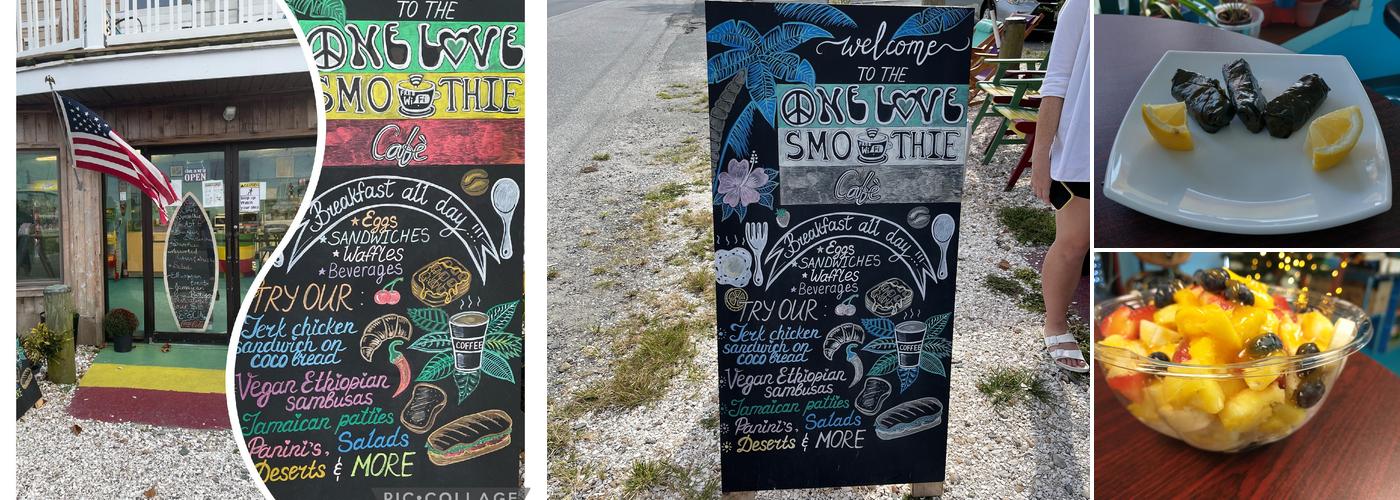 TO THE
ONE LOVE
SMOOTHIE
Café
Breakfast all day
Eggs
SANDWICHES
Waffles
Beverages
TRY OUR:
Jerk chicken
sandwich on
coco bread
COFFEE
Vegan Ethiopian
sambusas
Jamaican patties
Panini's, Salads
Deserts & MORE
PIC•COLLAGE
OPEN
welcome
TO THE
ONE LOVE
SMOOTHIE
Café
Breakfast all day
Eggs
SANDWICHES
Waffles
Beverages
TRY OUR:
Jerk chicken
sandwich on
coco bread
COFFEE
Vegan Ethiopian
sambusas
Jamaican patties
Panini's, Salads
Deserts & MORE